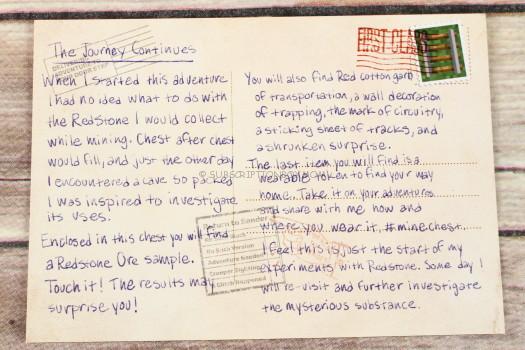 The Journey Continues
When I started this adventure
I had no idea what to do with
the RedStone I would collect
while mining. Chest after chest
would fill, and just the other day
I encountered a cave so packed
I was inspired to investigate
its uses.
Enclosed in this chest you will find
a Redstone Ore sample.
Touch it! The results may
surprise you!
FIRST CLASS
You will also find Red cotton garb
of transportation, a wall decoration
of trapping, the mark of circuitry,
a sticking sheet of tracks, and
a shrunken surprise.
The last item you will find is a
wearable token to find your way
home. Take it on your adventures
and share with me how and
where you wear it, #minechest.
I feel this is just the start of my
experiments with Redstone. Some day I
will re-visit and further investigate
the mysterious substance.
Return to Sender
No Such Version
Adventure Needed
Creeper Sighting